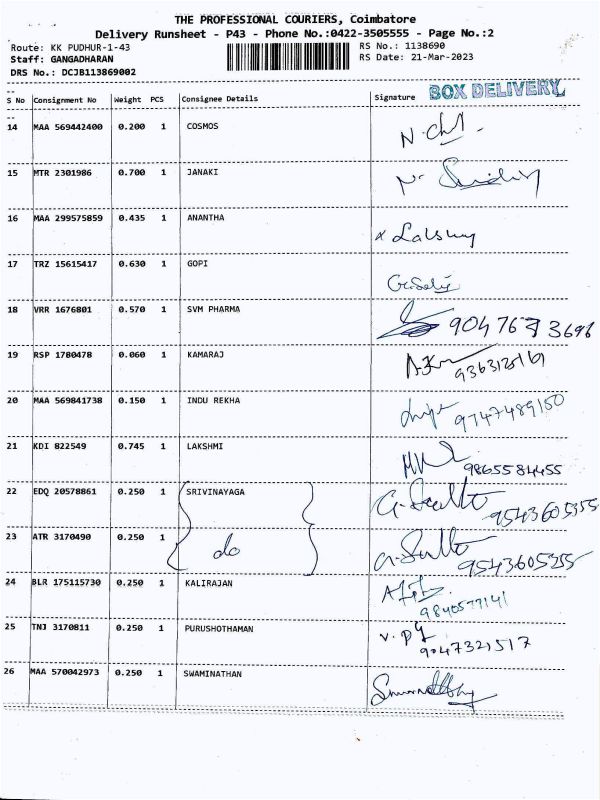 THE PROFESSIONAL COURIERS, Coimbatore
Delivery Runsheet - P43 - Phone No.:0422-3505555 - Page No.:2
Route: KK PUDHUR-1-43 RS No.: 1138690
Staff: GANGADHARAN RS Date: 21-Mar-2023
DRS No.: DCJB113869002
BOX DELIVERY
S No Consignment No Weight PCS Consignee Details Signature
14 MAA 569442400 0.200 1 COSMOS
15 MTR 2301986 0.700 1 JANAKI
16 MAA 299575859 0.435 1 ANANTHA
17 TRZ 15615417 0.630 1 GOPI
18 VRR 1676801 0.570 1 SVM PHARMA
19 RSP 1780478 0.060 1 KAMARAJ
20 MAA 569841738 0.150 1 INDU REKHA 9747489150
21 KDI 822549 0.745 1 LAKSHMI 9865584455
22 EDQ 20578861 0.250 1 SRIVINAYAGA 9543605355
23 ATR 3170490 0.250 1 do
24 BLR 175115730 0.250 1 KALIRAJAN
25 TNJ 3170811 0.250 1 PURUSHOTHAMAN 9047321517
26 MAA 570042973 0.250 1 SWAMINATHAN